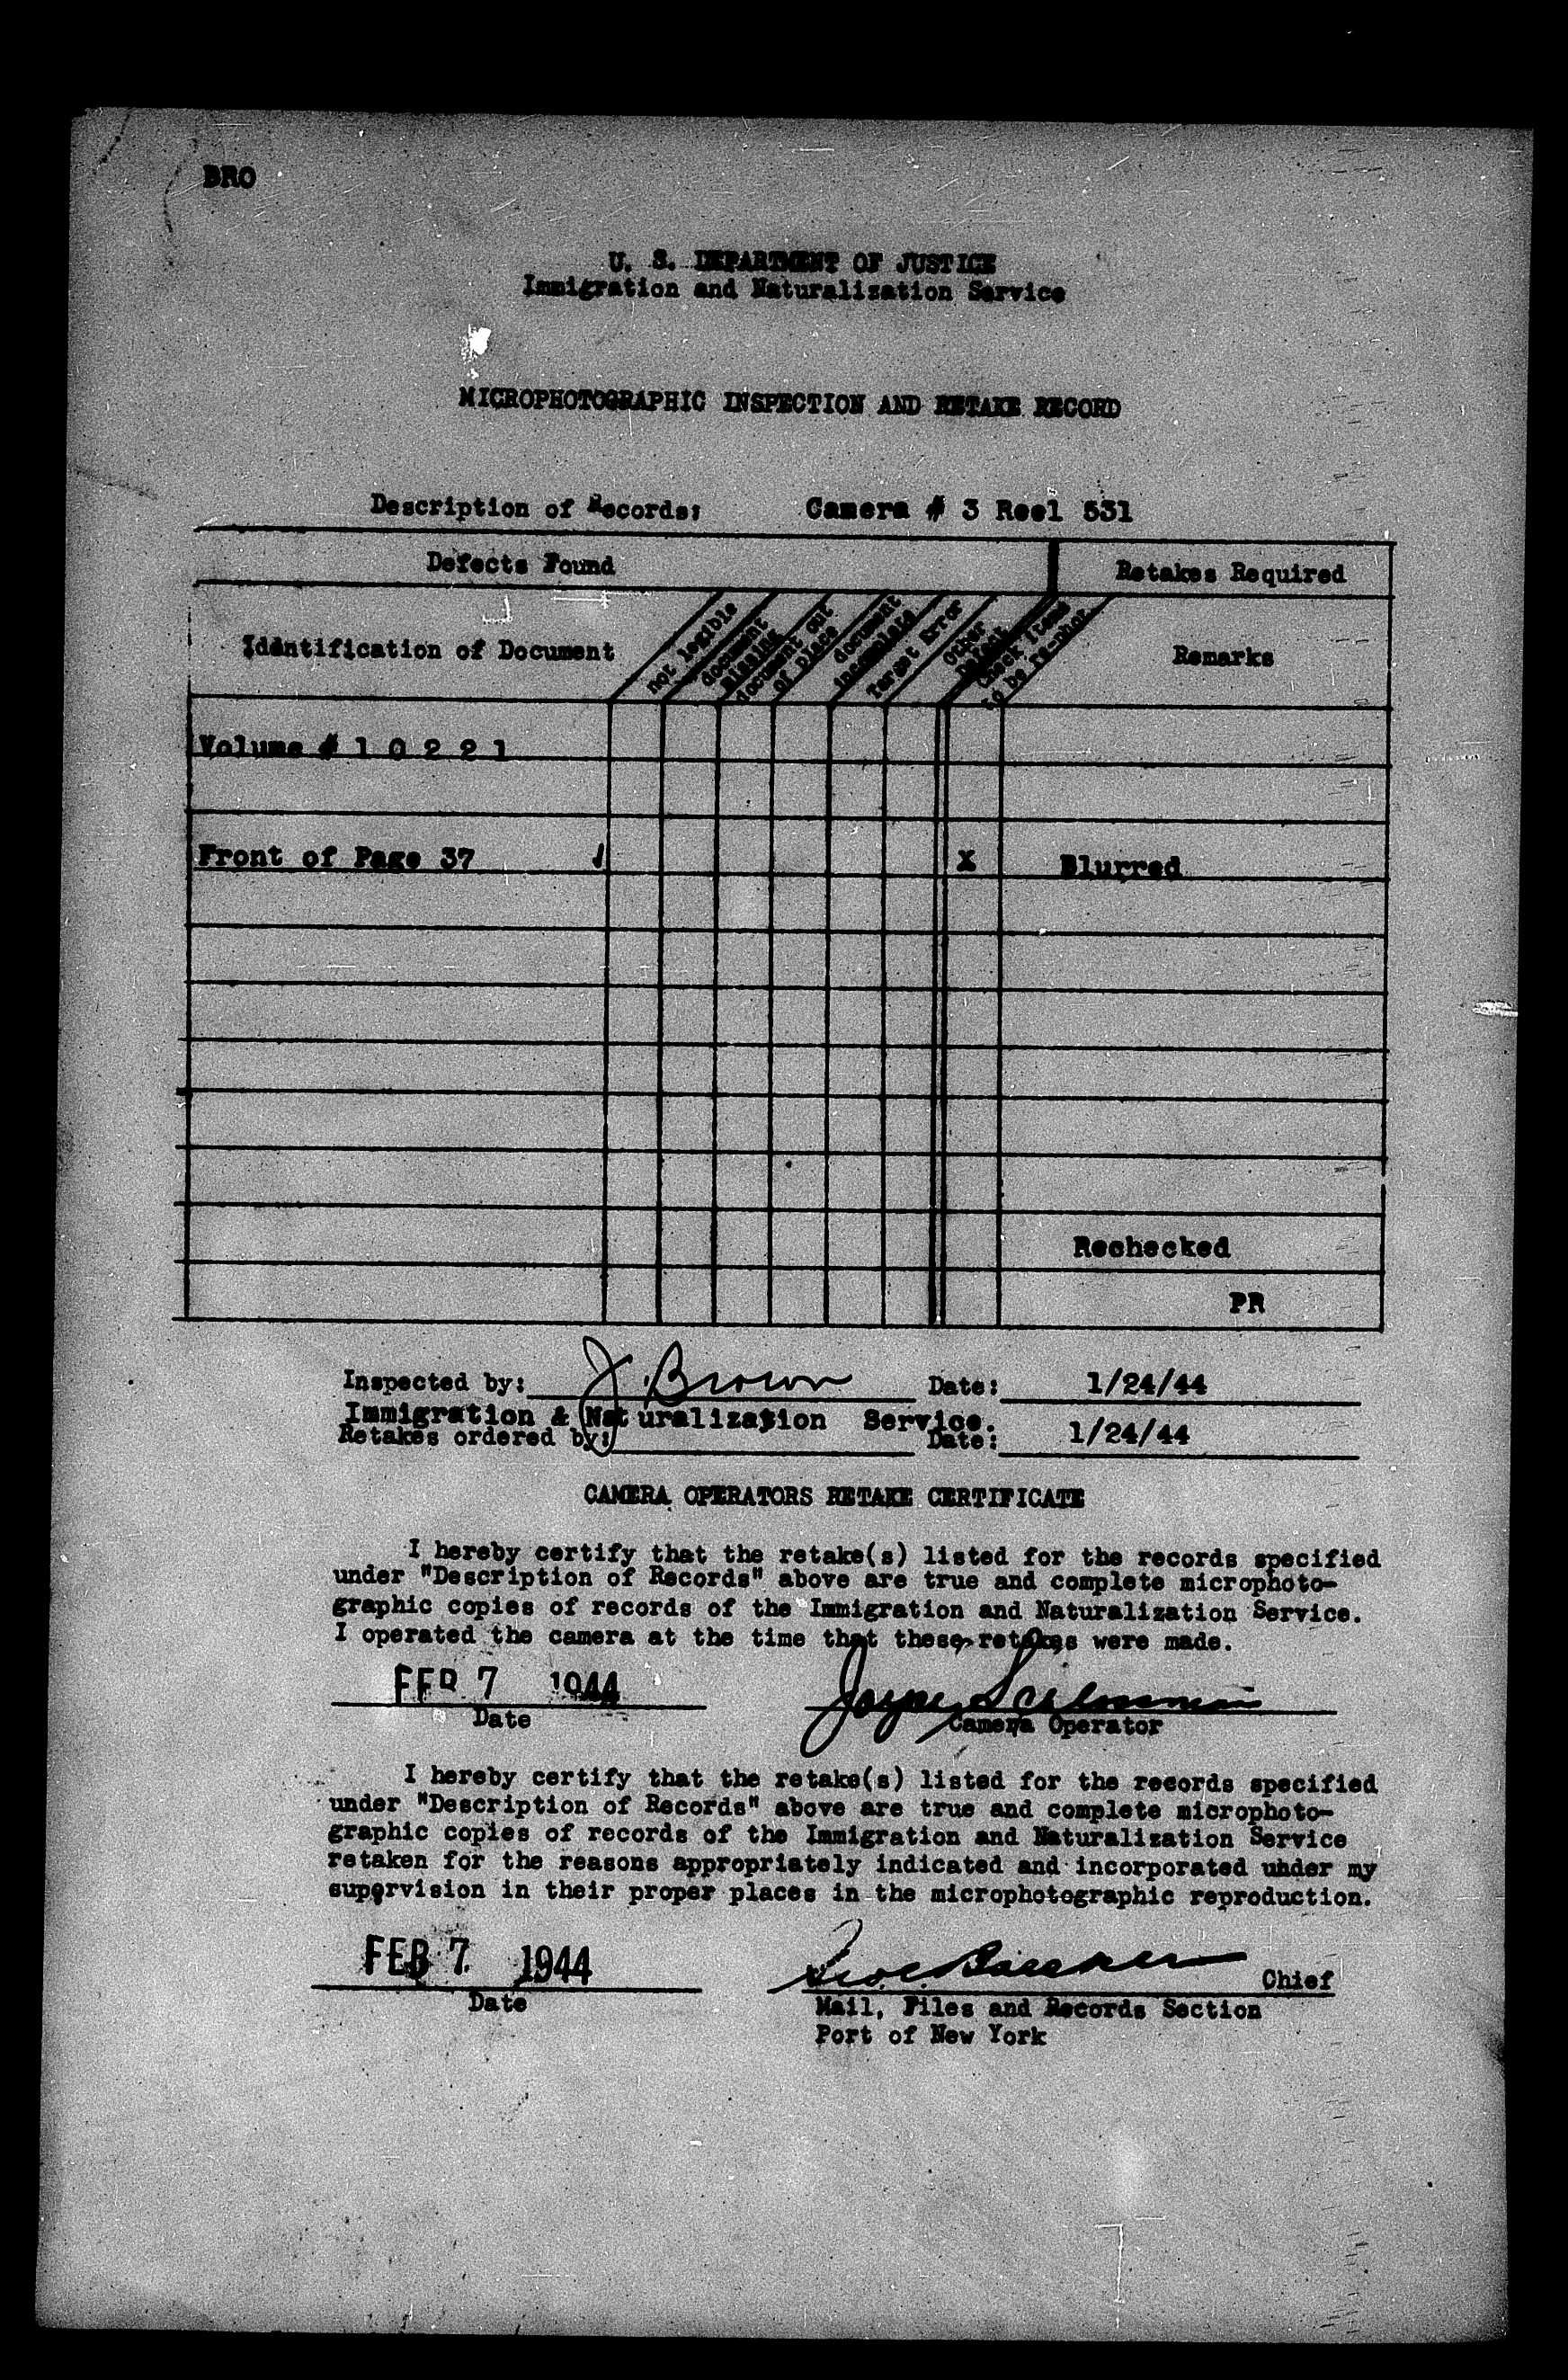 BRO
U. S. DEPARTMENT OF JUSTICE
Immigration and Naturalization Service
MICROPHOTOGRAPHIC INSPECTION AND RETAKE RECORD
Description of Records: Camera # 3 Reel 531
Defects Found Retakes Required
Identification of Document
not legible
document missing
document out of place
document incomplete
Target Error
Other Defect
Check items to be re-phot.
Remarks
Volume # 1 0 2 2 1
Front of Page 37 ✓ X Blurred
Rechecked
PR
Inspected by: J. Brown Date: 1/24/44
Immigration & Naturalization Service.
Retakes ordered by: Date: 1/24/44
CAMERA OPERATORS RETAKE CERTIFICATE
I hereby certify that the retake(s) listed for the records specified
under "Description of Records" above are true and complete microphoto-
graphic copies of records of the Immigration and Naturalization Service.
I operated the camera at the time that these retakes were made.
FEB 7 1944
Date Camera Operator
I hereby certify that the retake(s) listed for the records specified
under "Description of Records" above are true and complete microphoto-
graphic copies of records of the Immigration and Naturalization Service
retaken for the reasons appropriately indicated and incorporated under my
supervision in their proper places in the microphotographic reproduction.
FEB 7 1944 Chief
Date Mail, Files and Records Section
Port of New York